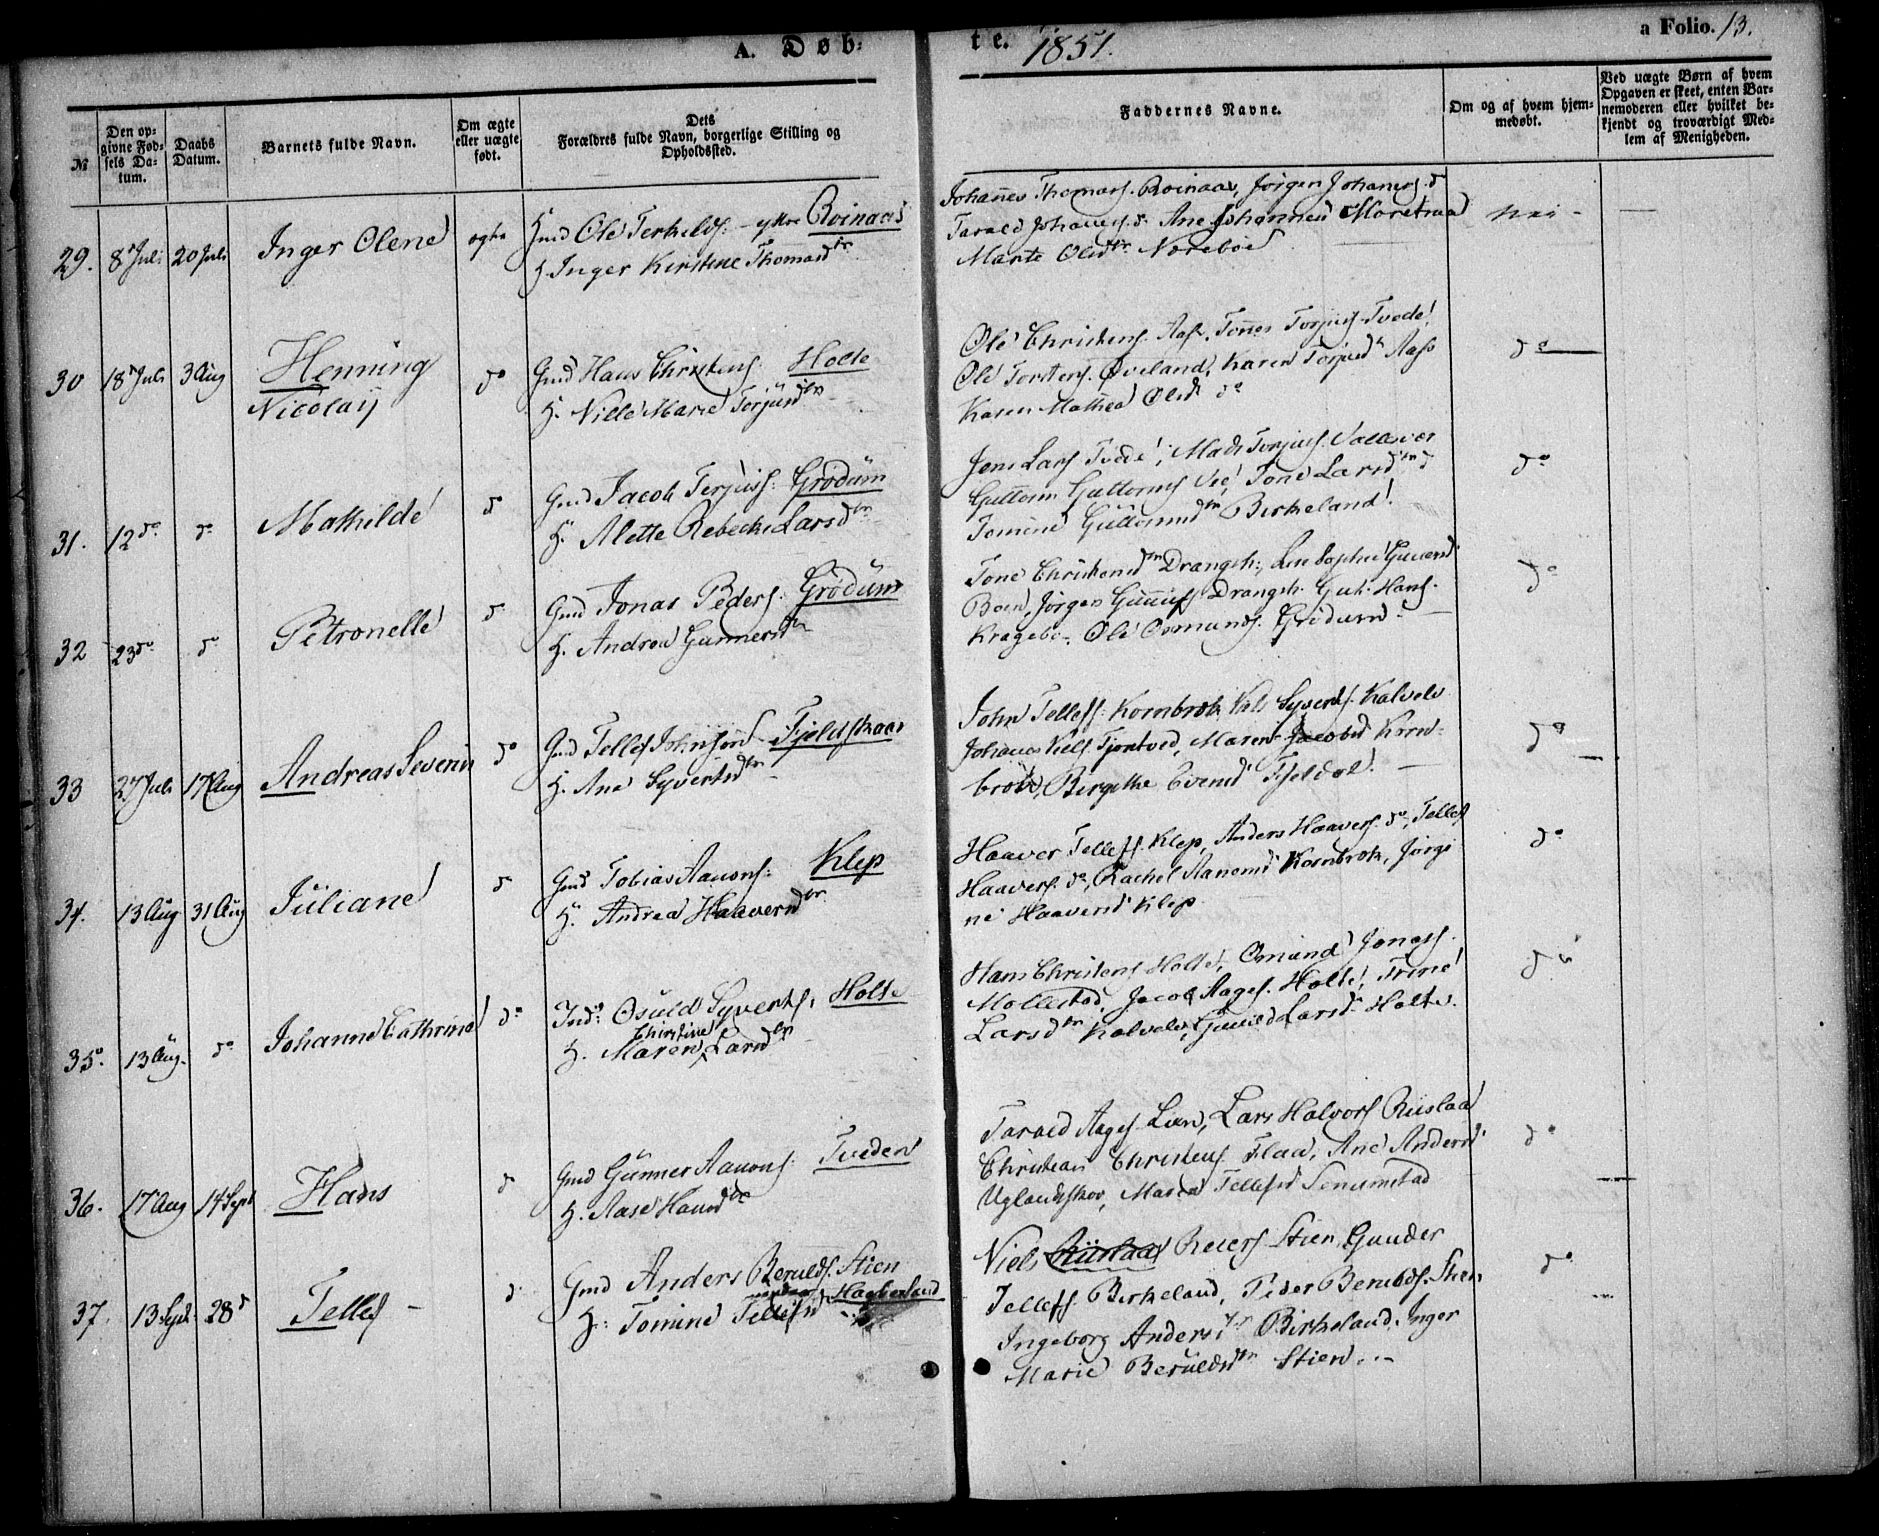 A. Døb-
te. 1851.
a Folio. 13.
№
Den op-
givne Fød-
sels Da-
tum.
Daabs
Datum.
Barnets fulde Navn.
Om ægte
eller uægte
født.
Dets
Forældres fulde Navn, borgerlige Stilling og
Opholdssted.
Faddernes Navne.
Om og af hvem hjem-
medøbt.
Ved uægte Børn af hvem
Opgaven er skeet, enten Bar-
nemoderen eller hvilket be-
kjendt og troværdigt Med-
lem af Menigheden.
29. 8 Juli 20 Juli Inger Olene ægte
Gmd Ole Terkelds. ytre Roinaas
H. Inger Kirstine Thomasdtr
Johanes Thomas. Roinaas, Jørgen Johanes. d
Tarald Johanes. do Ane Johannesd Moretraa
Marte Olsdtr Noreboe
nei -
30 18 Juli 3 Aug Henning
Nicolaij
do
Gmd Hans Christens. Holte
H. Nille Marie Torjusdtr
Ole Christens. Aas, Tønes Torjus. Tvede
Ole Torsters. Øveland, Karen Torjusd Aass
Karen Mathea Olsd do
do
31. 12 do do Mathilde d
Gmd Jacob Terjus. Grødum
H. Alette Rebecka Larsdtr
Jens Lars Tvede, Mads Torjus.
Guttorm Guttorms Vee, Tone Larsdtr d
Tomine Guttormsdtr Birkeland
do
32 23 do do Petronelle d
Gmd Jonas Peders. Grødum
H. Andrea Gunnersdtr
Tone Christensdtr Drangsh., Sophie Gunersd
Boen, Jørgen Gunnufs Drangsh. Gut. Hans.
Kragebo. Ole Osmunds. Grødum
do
33 27 Juli 17 Aug Andreas Severin do
Gmd Tellef Johnsen Fjeldskaar
H. Ane Syvertsdtr
John Tellefs. Kornbrok Nils Syverts. Kalvels
Johanes Niels. Tjomtved, Maren Jacobsd Korn-
brok, Birgithe Evensd Fjeldal.
do
34. 13 Aug 31 Aug Juliane d
Gmd Tobias Aanons. Klep
H. Andrea Haaversdtr
Haaver Tellefs. Klep, Anders Haavers. do, Tellef
Haavers. do, Rachel Aanonsd Kornbrok, Jørgi
ne Haaversd Klep
do
35. 13 Aug. do Johanne Cathrine do
Ind. Osuld Syverts. Holte
Christine
H. Maren Larsdtr
Hans Christens Holte, Omund Jonass.
Mollestad, Jacob Aages. Holte, Trine
Larsdtr Kalvels, Gunild Larsd Holte.
do
36. 17 Aug 14 Sept Hans d
Gmd Gunner Aanons. Tveden
H. Aase Hansdtr
Tarald Aages. Lien, Lars Halvors Riislaa
Christian Christens Flaa, Ane Andersd
Uglandskov, Maren Tellefsd Senumstad
do
37. 13 Sept. 28 d Tellef - d
Gmd Anders Berulds. Stien
Haaberland
H. Tomine Tellefsd
Niels Riislaa Reiers Stien, Gunder
Tellefs. Birkeland, Peder Berulds. Stien
Ingeborg Andersdtr Birkeland, Inger
Marie Beruldsdtr Stien.
do